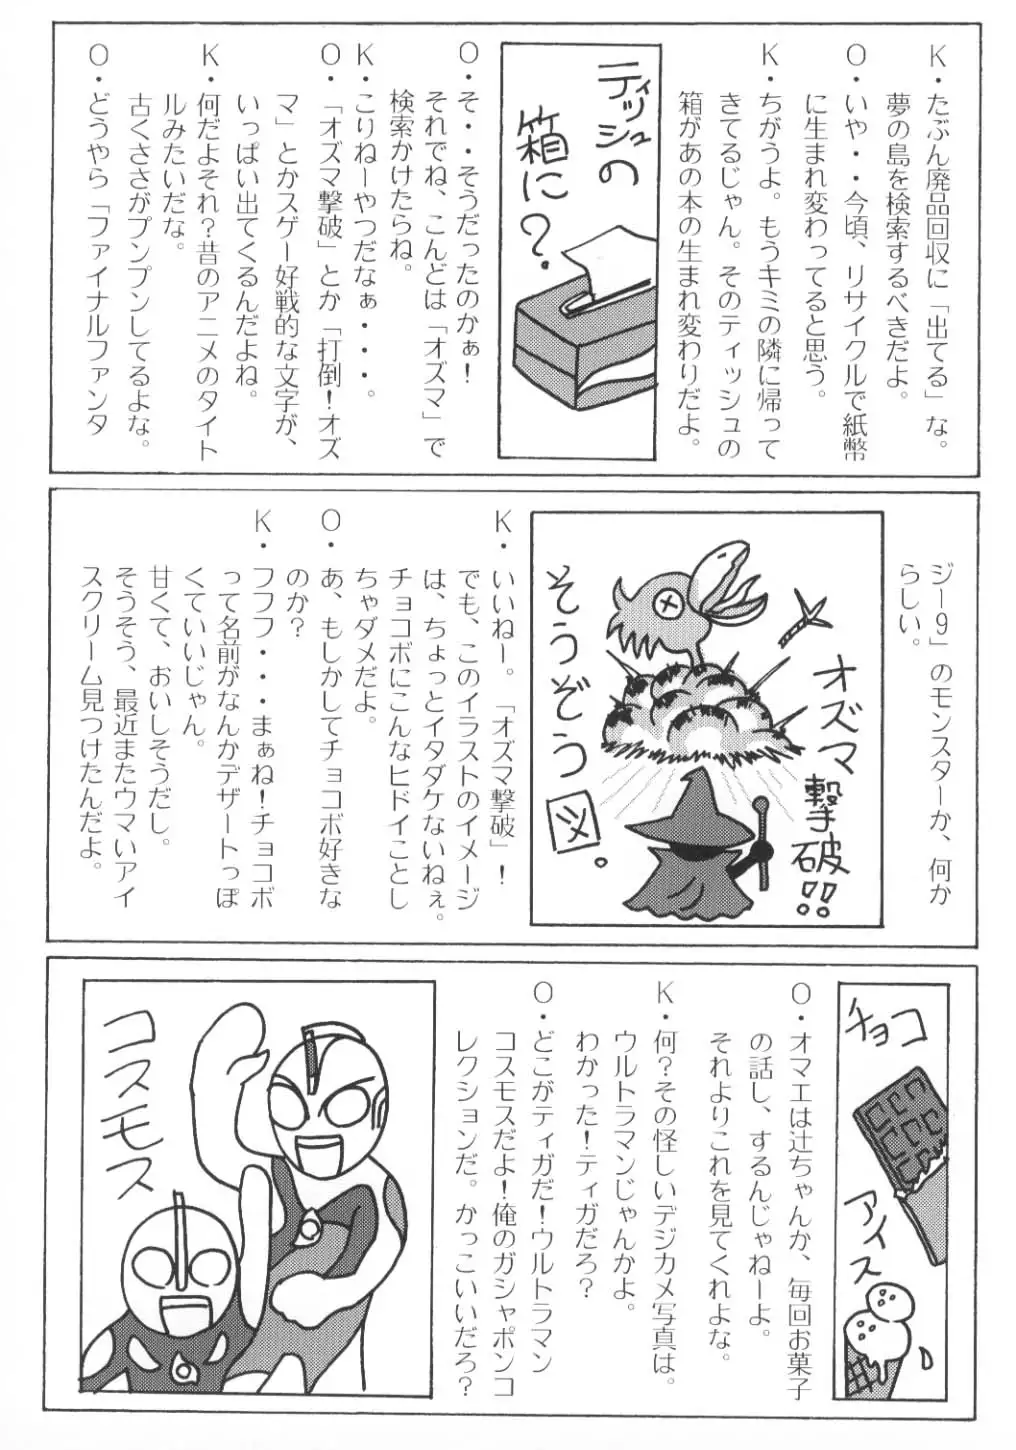 K・たぶん廃品回収に「出てる」な。
夢の島を検索するべきだよ。
O・いや・・今頃、リサイクルで紙幣
に生まれ変わってると思う。
K・ちがうよ。もうキミの隣に帰って
きてるじゃん。そのティッシュの
箱があの本の生まれ変わりだよ。
ティッシュの
箱に?
O・そ・・そうだったのかぁ!
それでね、こんどは「オズマ」で
検索かけたらね。
K・こりねーやつだなぁ・・・。
O・「オズマ撃破」とか「打倒!オズ
マ」とかスゲー好戦的な文字が、
いっぱい出てくるんだよね。
K・何だよそれ?昔のアニメのタイト
ルみたいだな。
古くささがプンプンしてるよな。
O・どうやら「ファイナルファンタ
ジー9」のモンスターか、何か
らしい。
オズマ
撃破!!
そうぞう図。
K・いいねー。「オズマ撃破」!
でも、このイラストのイメージ
は、ちょっとイタダケないねぇ。
チョコボにこんなヒドイことし
ちゃダメだよ。
O・あ、もしかしてチョコボ好きな
のか?
K・フフフ・・・まぁね!チョコボ
って名前がなんかデザートっぽ
くていいじゃん。
甘くて、おいしそうだし。
そうそう、最近またウマいアイ
スクリーム見つけたんだよ。
チョコ
アイス
O・オマエは辻ちゃんか、毎回お菓子
の話し、するんじゃねーよ。
それよりこれを見てくれよな。
K・何?その怪しいデジカメ写真は。
ウルトラマンじゃんかよ。
わかった!ティガだろ?
O・どこがティガだ!ウルトラマン
コスモスだよ!俺のガシャポンコ
レクションだ。かっこいいだろ?
コスモス